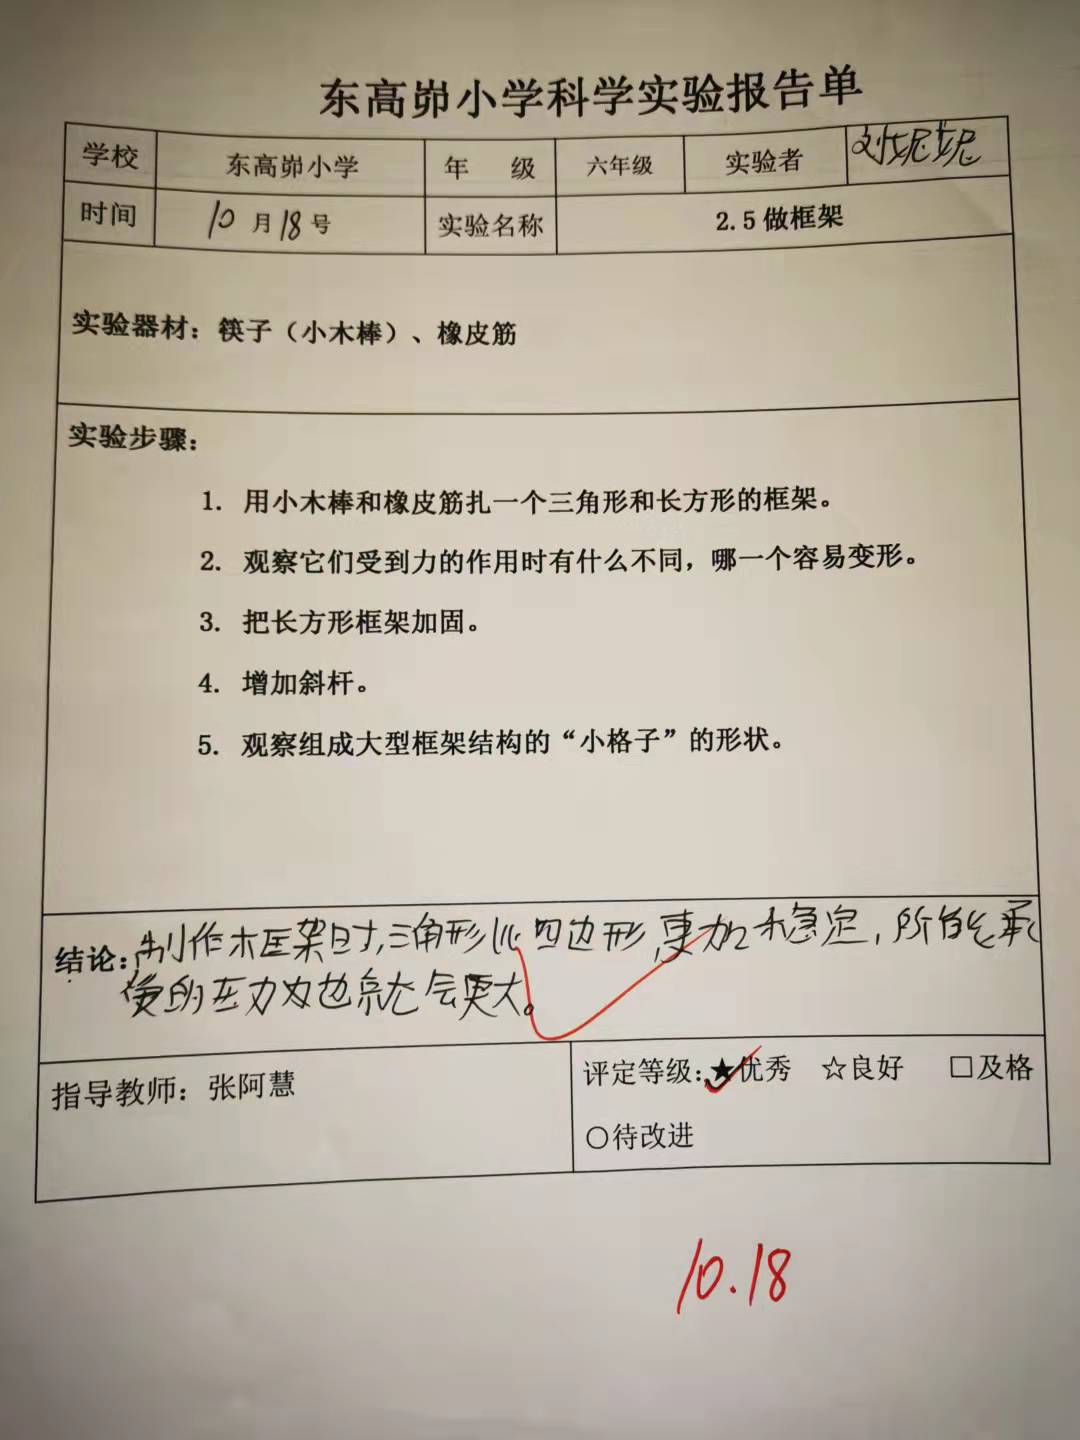 东高峁小学科学实验报告单
学校 东高峁小学 年 级 六年级 实验者 刘妮妮
时间 10月18号 实验名称 2.5做框架
实验器材：筷子（小木棒）、橡皮筋
实验步骤：
1. 用小木棒和橡皮筋扎一个三角形和长方形的框架。
2. 观察它们受到力的作用时有什么不同，哪一个容易变形。
3. 把长方形框架加固。
4. 增加斜杆。
5. 观察组成大型框架结构的“小格子”的形状。
结论：制作框架时，三角形比四边形更加稳定，所能承
受的压力也就会更大。
指导教师：张阿慧
评定等级：★优秀 ☆良好 □及格
○待改进
10.18